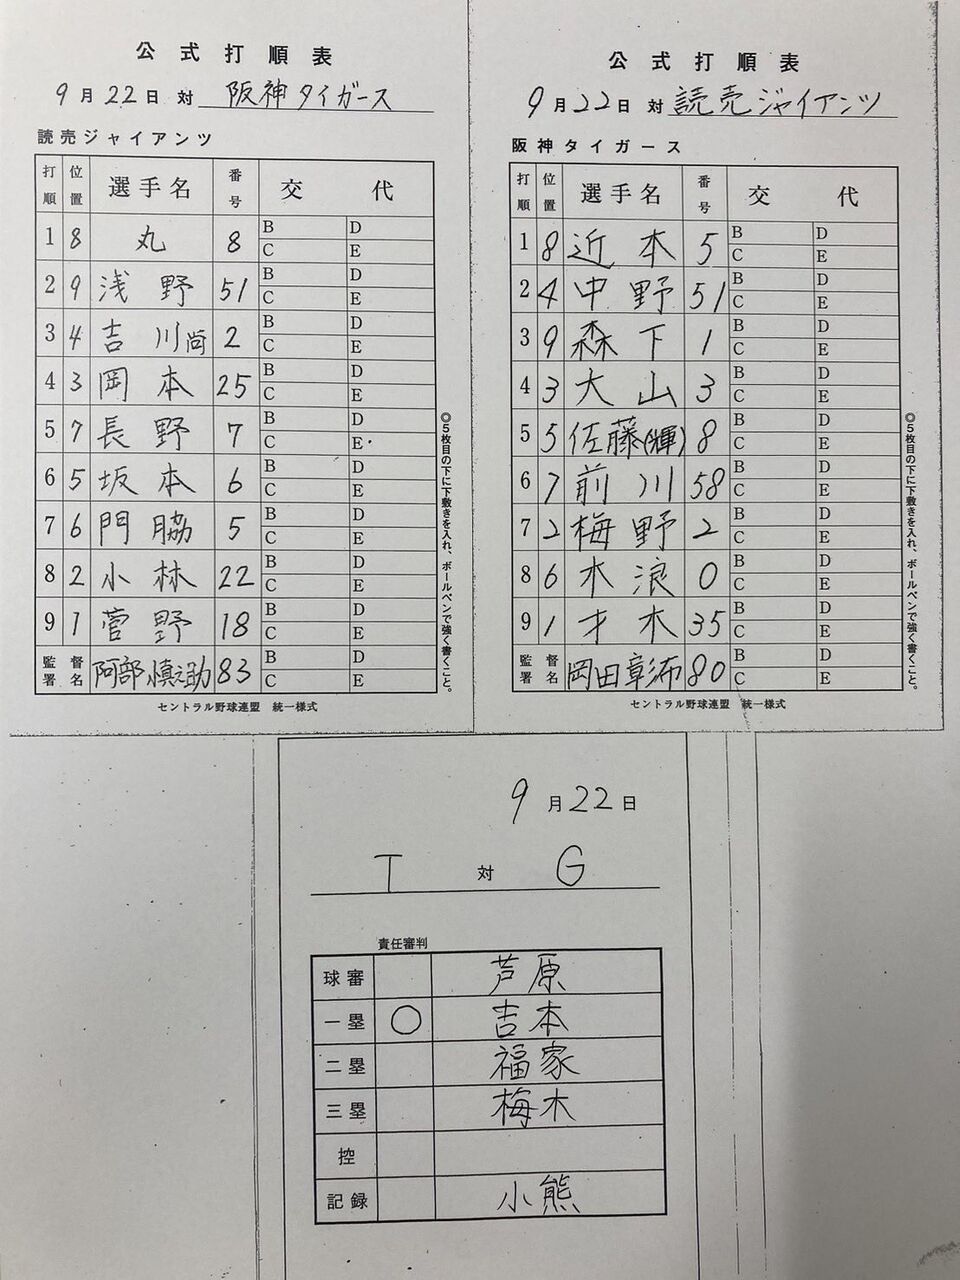 公式打順表
9月22日 対 阪神タイガース
読売ジャイアンツ
打順 位置 選手名 番号 交代
1 8 丸 8 B D C E
2 9 浅野 51 B D C E
3 4 吉川尚 2 B D C E
4 3 岡本 25 B D C E
5 7 長野 7 B D C E
6 5 坂本 6 B D C E
7 6 門脇 5 B D C E
8 2 小林 22 B D C E
9 1 菅野 18 B D C E
監督署名 阿部慎之助 83 B D C E
◎5枚目の下に下敷きを入れ、ボールペンで強く書くこと。
セントラル野球連盟 統一様式
公式打順表
9月22日 対 読売ジャイアンツ
阪神タイガース
打順 位置 選手名 番号 交代
1 8 近本 5 B D C E
2 4 中野 51 B D C E
3 9 森下 1 B D C E
4 3 大山 3 B D C E
5 5 佐藤(輝) 8 B D C E
6 7 前川 58 B D C E
7 2 梅野 2 B D C E
8 6 木浪 0 B D C E
9 1 才木 35 B D C E
監督署名 岡田彰布 80 B D C E
◎5枚目の下に下敷きを入れ、ボールペンで強く書くこと。
セントラル野球連盟 統一様式
9月22日
T 対 G
責任審判
球審 芦原
一塁 ○ 吉本
二塁 福家
三塁 梅木
控
記録 小熊